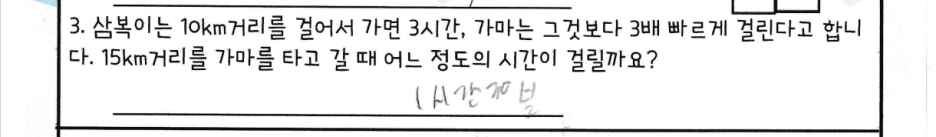 3. 삼복이는 10km거리를 걸어서 가면 3시간, 가마는 그것보다 3배 빠르게 걸린다고 합니
다. 15km거리를 가마를 타고 갈 때 어느 정도의 시간이 걸릴까요?
1시간30분